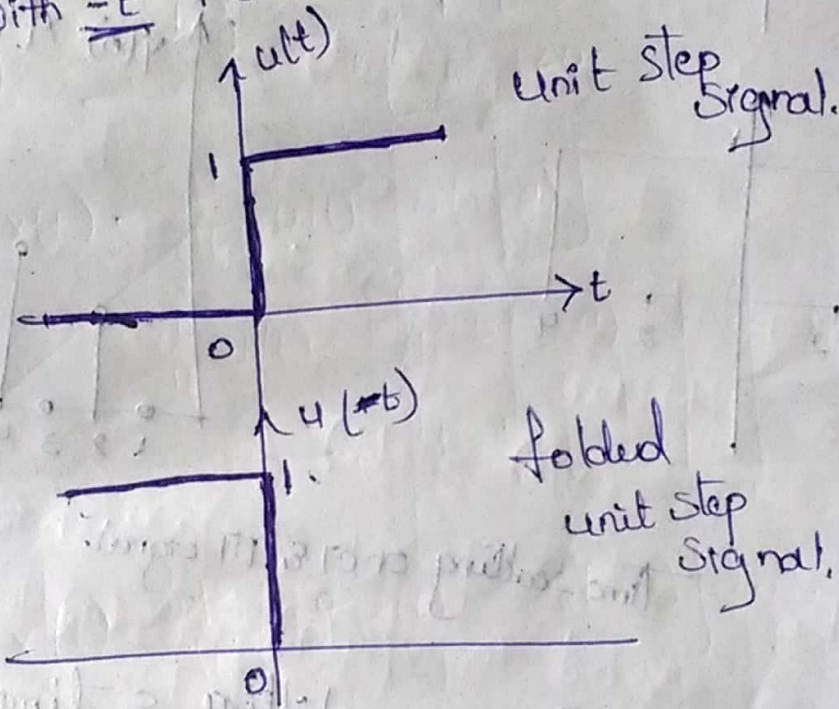 with -t
u(t)
unit step
signal.
1
t
0
u(-t)
folded
unit step
signal.
1.
0